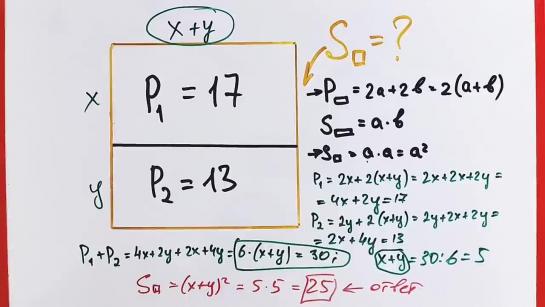 x+y
S□ = ?
x
P₁ = 17
→P▭ = 2a+2b = 2(a+b)
S▭ = a·b
→S□ = a·a = a²
y
P₂ = 13
P₁ = 2x+2(x+y) = 2x+2x+2y =
= 4x+2y = 17
P₂ = 2y+2(x+y) = 2y+2x+2y =
= 2x+4y = 13
P₁+P₂ = 4x+2y+2x+4y = 6·(x+y) = 30;
x+y = 30:6 = 5
S□ = (x+y)² = 5·5 = 25 ← ответ